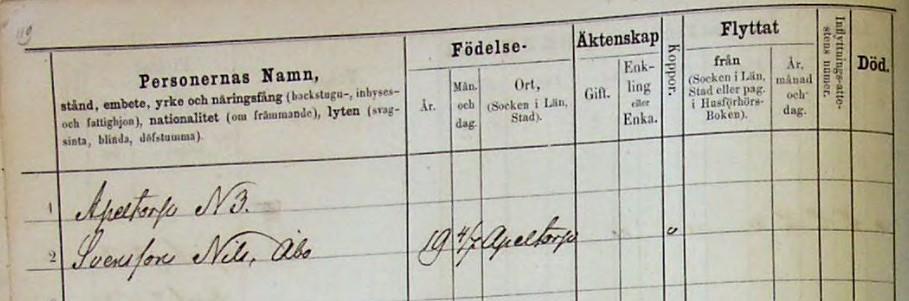 119
Personernas Namn,
stånd, embete, yrke och näringsfång (backstugu-, inhyses-
och fattighjon), nationalitet (om främmande), lyten (svag-
sinta, blinda, döfstumma).
Födelse-
År.
Mån.
och
dag.
Ort,
(Socken i Län,
Stad).
Äktenskap
Gift.
Enk-
ling
eller
Enka.
Koppor.
Flyttat
från
(Socken i Län,
Stad eller pag.
i Husförhörs-
Boken).
År,
månad
och
dag.
Inflyttnings-atte-
stens numer.
Död.
1 Apeltorp N 3.
2 Svensson Nils, Åbo 19 4/7 Apeltorp v